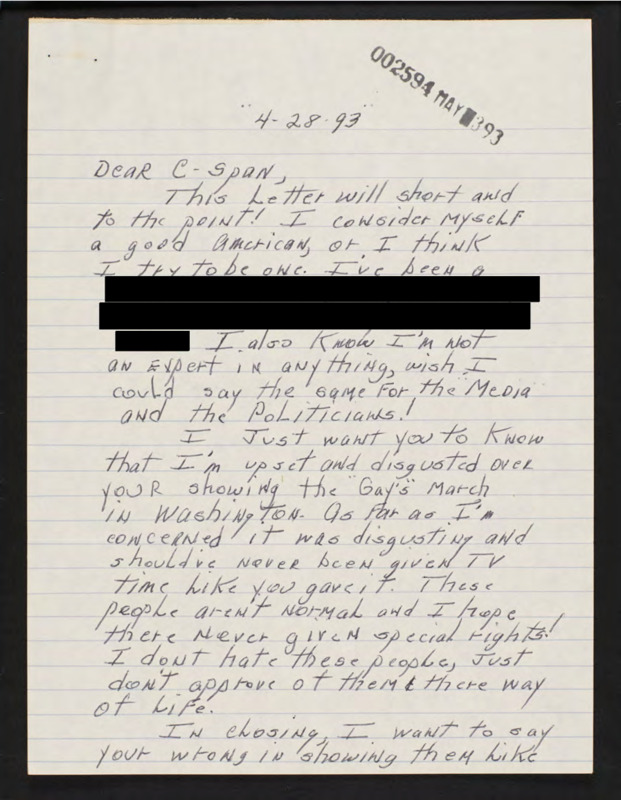 002594 MAY 393
"4-28-93"
Dear C-Span,
This Letter will short and
to the point! I consider myself
a good American, or I think
I try to be one. I've been a
I also Know I'm not
an Expert in anything, wish I
could say the same for the "Media"
and the Politicians!
I Just want you to Know
that I'm upset and disgusted over
your showing the "Gay's" March
in Washington. As far as I'm
concerned it was disgusting and
should've never been given TV
time Like you gave it. These
people arent normal and I hope
there never given special rights!
I dont hate these people, Just
don't approve of them & there way
of Life.
In closing, I want to say
your wrong in showing them Like